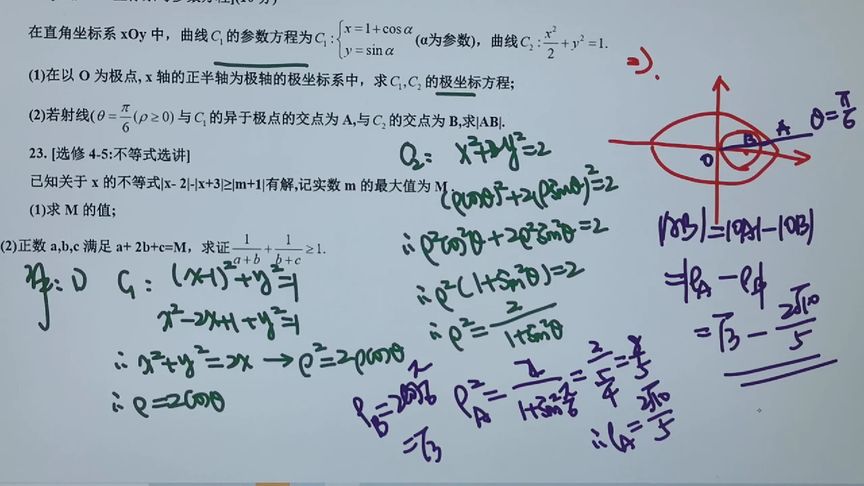 在直角坐标系 xOy 中，曲线C₁的参数方程为C₁:{x=1+cosα y=sinα (α为参数)，曲线C₂:x²/2+y²=1.
(1)在以 O 为极点, x 轴的正半轴为极轴的极坐标系中，求C₁,C₂的极坐标方程;
(2)若射线(θ=π/6(ρ≥0)与C₁的异于极点的交点为 A,与C₂的交点为 B,求|AB|.
23. [选修 4-5:不等式选讲]
已知关于 x 的不等式|x- 2|-|x+3|≥|m+1|有解,记实数 m 的最大值为 M
(1)求 M 的值;
(2)正数 a,b,c 满足 a+ 2b+c=M，求证1/(a+b)+1/(b+c)≥1.
C₁: (x-1)²+y²=1
x²-2x+1+y²=1
∴ x²+y²=2x → ρ²=2ρcosθ
∴ ρ=2cosθ
C₂: x²+2y²=2
(ρcosθ)²+2(ρsinθ)²=2
∴ρ²cos²θ+2ρ²sin²θ=2
∴ρ²(1+sin²θ)=2
∴ρ²=2/(1+sin²θ)
ρB=2cosπ/6
=√3
ρA²=2/(1+sin²π/6)=2/(5/4)=8/5
∴ρA=2√10/5
2).
B A θ=π/6
O
|AB|=|OA|-|OB|
=|ρA-ρB|
=√3-2√10/5